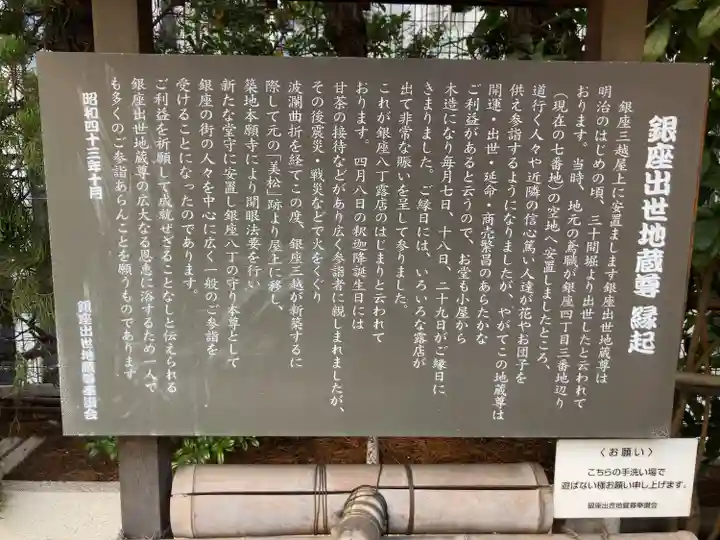 銀座出世地蔵尊 縁起
銀座三越屋上に安置まします銀座出世地蔵尊は
明治のはじめの頃、三十間堀より出世したと云われて
おります。当時、地元の鳶職が銀座四丁目三番地辺り
（現在の七番地）の空地へ安置しましたところ、
道行く人々や近隣の信心篤い人達が花やお団子を
供え参詣するようになりましたが、やがてこの地蔵尊は
開運・出世・延命・商売繁昌のあらたかな
ご利益があると云うので、お堂も小屋から
木造になり毎月七日、十八日、二十九日がご縁日に
きまりました。ご縁日には、いろいろな露店が
出て非常な賑いを呈して参りました。
これが銀座八丁露店のはじまりと云われて
おります。四月八日の釈迦降誕生日には
甘茶の接待などがあり広く参詣者に親しまれましたが、
その後震災・戦災などで火をくぐり
波瀾曲折を経てこの度、銀座三越が新築するに
際して元の「美松」跡より屋上に移し、
築地本願寺により開眼法要を行い
新たな堂守に安置し銀座八丁の守り本尊として
銀座の街の人々を中心に広く一般のご参詣を
受けることになったのであります。
ご利益を祈願して成就せざることなしと伝えられる
銀座出世地蔵尊の広大なる恩恵に浴するため一人で
も多くのご参詣あらんことを願うものであります
昭和四十三年十月
銀座出世地蔵尊奉讃会
〈お願い〉
こちらの手洗い場で
遊ばない様お願い申し上げます。
銀座出世地蔵尊奉讃会